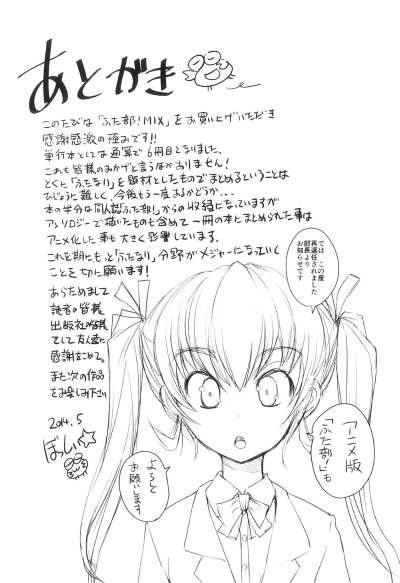 あとがき
このたびは「ふた部!MIX」をお買い上げいただき
感謝感激の極みです!!
単行本としては通算で6冊目となりました。
これも皆様のおかげと言うほかありません!
とくに「ふたなり」を題材としたものでまとめるということは
ひじょうに難しく、今後もう一度あるかどうか...
本の半分は同人誌「ふた部!」からの収録になっていますが
アンソロジーで描いたものも含めて一冊の本にまとめられた事は
アニメ化した事も大きく影響しています。
これを期にもっと「ふたなり」分野がメジャーになっていく
ことを切に願います!
あらためまして
読者の皆様
出版社の皆様
そして友人達に
感謝をこめて。
また次の作品
をお楽しみ下さい
2014.5
ぼっしぃ
では、この度
再選任されました
部長より
お知らせです
アニメ版
「ふた部!」も
よろしく
お願いします